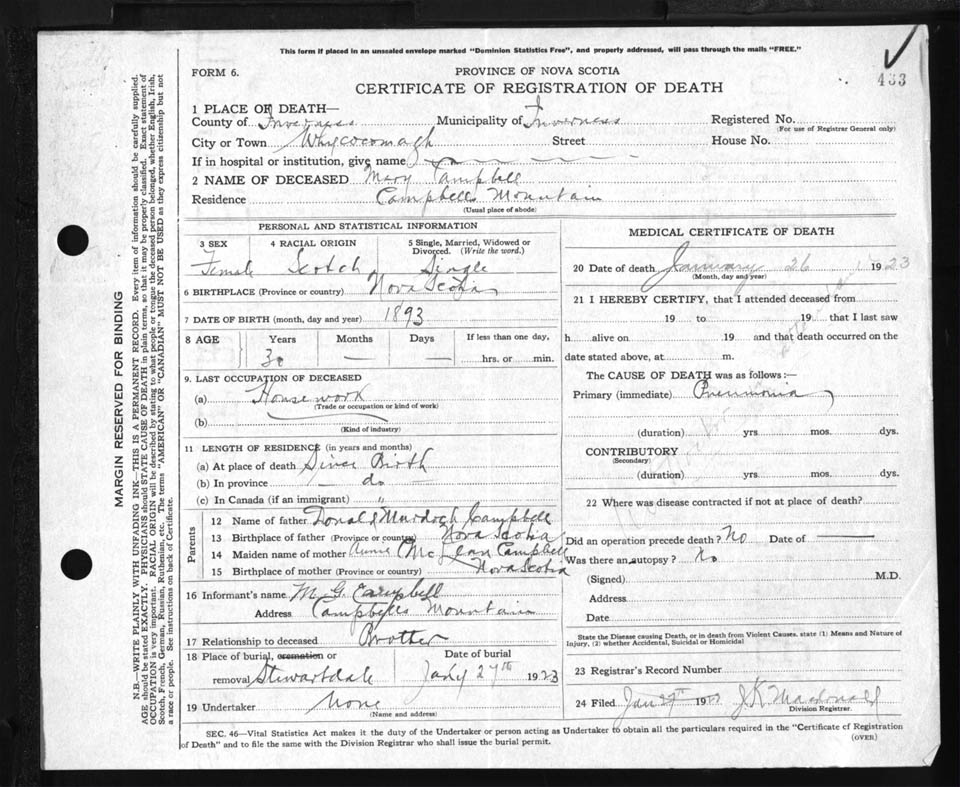 This form if placed in an unsealed envelope marked "Dominion Statistics Free", and properly addressed, will pass through the mails "FREE."
FORM 6.
PROVINCE OF NOVA SCOTIA
433
CERTIFICATE OF REGISTRATION OF DEATH
1 PLACE OF DEATH—
County of Inverness Municipality of Inverness Registered No.
(For use of Registrar General only)
City or Town Whycocomagh Street House No.
If in hospital or institution, give name
2 NAME OF DECEASED Mary Campbell
Residence Campbells Mountain
(Usual place of abode)
PERSONAL AND STATISTICAL INFORMATION
3 SEX 4 RACIAL ORIGIN 5 Single, Married, Widowed or Divorced. (Write the word.)
Female Scotch Single
6 BIRTHPLACE (Province or country) Nova Scotia
7 DATE OF BIRTH (month, day and year) 1893
8 AGE Years Months Days If less than one day,
30 — — hrs. or min.
9. LAST OCCUPATION OF DECEASED
(a) Housework
(Trade or occupation or kind of work)
(b)
(Kind of industry)
11 LENGTH OF RESIDENCE (in years and months)
(a) At place of death Since Birth
(b) In province do
(c) In Canada (if an immigrant) "
Parents
12 Name of father Donald Murdoch Campbell
13 Birthplace of father (Province or country) Nova Scotia
14 Maiden name of mother Annie McLean Campbell
15 Birthplace of mother (Province or country) Nova Scotia
16 Informant's name M. G. Campbell
Address Campbells Mountain
17 Relationship to deceased Brother
18 Place of burial, cremation or removal Stewartdale
Date of burial
Jany 27th 1923
19 Undertaker None
(Name and address)
MEDICAL CERTIFICATE OF DEATH
20 Date of death January 26 1923
(Month, day and year)
21 I HEREBY CERTIFY, that I attended deceased from
19 to 19 that I last saw
h alive on 19 and that death occurred on the
date stated above, at m.
The CAUSE OF DEATH was as follows:—
Primary (immediate) Pneumonia
(duration) yrs. mos. dys.
CONTRIBUTORY
(Secondary)
(duration) yrs. mos. dys.
22 Where was disease contracted if not at place of death?
Did an operation precede death? No Date of
Was there an autopsy? No
(Signed) M.D.
Address
Date
State the Disease causing Death, or in death from Violent Causes, state (1) Means and Nature of
Injury, (2) whether Accidental, Suicidal or Homicidal
23 Registrar's Record Number
24 Filed Jan 27th 19 J.K. Macdonald
Division Registrar.
SEC. 46—Vital Statistics Act makes it the duty of the Undertaker or person acting as Undertaker to obtain all the particulars required in the "Certificate of Registration
of Death" and to file the same with the Division Registrar who shall issue the burial permit.
(OVER)
MARGIN RESERVED FOR BINDING
N.B.—WRITE PLAINLY WITH UNFADING INK—THIS IS A PERMANENT RECORD. Every item of information should be carefully supplied.
AGE should be stated EXACTLY. PHYSICIANS should STATE CAUSE OF DEATH in plain terms, so that it may be properly classified. Exact statement of
OCCUPATION is very important. RACIAL ORIGIN will be described by stating to what people or tongue the deceased person belonged, whether English, Irish,
Scotch, French, German, Russian, Ruthenian, etc. The terms "AMERICAN" or "CANADIAN" MUST NOT BE USED as they express citizenship but not
a race or people. See instructions on back of Certificate.